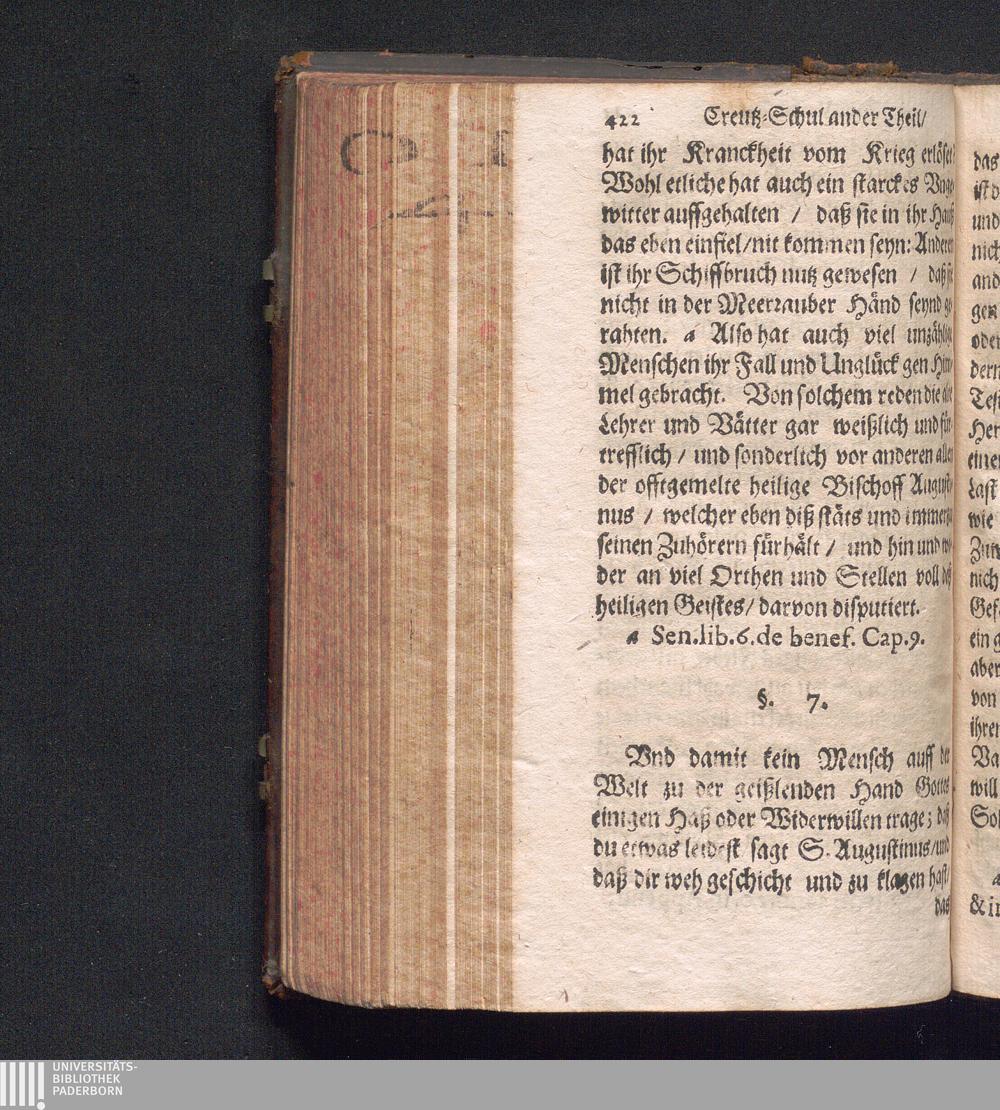 422 Creutz-Schul ander Theil/
hat ihr Kranckheit vom Krieg erlöset:
Wohl etliche hat auch ein starckes Vnge-
witter auffgehalten / daß sie in ihr Hauß
das eben einfiel/nit kommen seyn: Anderen
ist ihr Schiffbruch nutz gewesen / daß sie
nicht in der Meerrauber Händ seynd ge-
rahten. a Also hat auch viel unzählige
Menschen ihr Fall und Unglück gen Him-
mel gebracht. Von solchem reden die alte
Lehrer und Vätter gar weißlich und für-
trefflich / und sonderlich vor anderen allen
der offtgemelte heilige Bischoff Augusti-
nus / welcher eben diß stäts und immerzu
seinen Zuhörern fürhält / und hin und wi-
der an viel Orthen und Stellen voll deß
heiligen Geistes/ darvon disputiert.
a Sen.lib.6.de benef. Cap.9.
§. 7.
Vnd damit kein Mensch auff der
Welt zu der geißlenden Hand Gottes
einigen Haß oder Widerwillen trage; daß
du etwas leidest sagt S. Augustinus/und
daß dir weh geschicht und zu klagen hast/
das
das
ist d
und
nich
and
gen
oder
dern
Test
Her
einer
Last
wie
nich
Gese
ein g
aber
von
ihren
Va
will
Sol
a
& in
UNIVERSITÄTS-
BIBLIOTHEK
PADERBORN